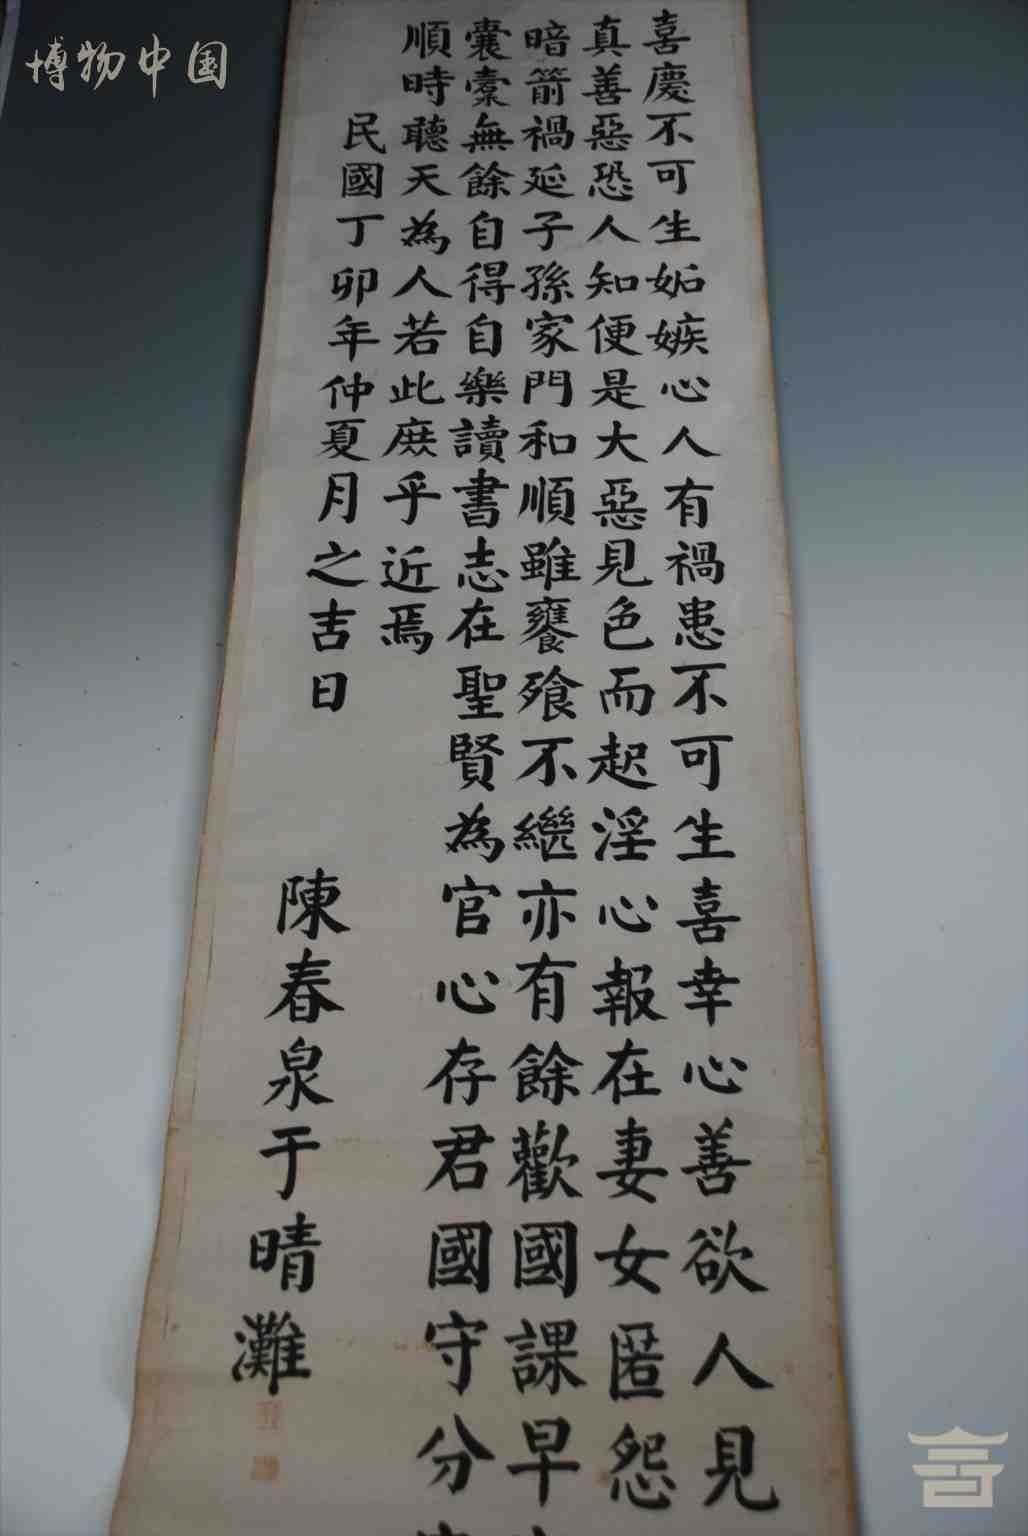 博物中国
喜慶不可生妬嫉心人有禍患不可生喜幸心善欲人見
真善惡恐人知便是大惡見色而起淫心報在妻女匿怨
暗箭禍延子孫家門和順雖饔飧不繼亦有餘歡國課早
囊橐無餘自得自樂讀書志在聖賢為官心存君國守分
順時聽天為人若此庶乎近焉
民國丁卯年仲夏月之吉日
陳春泉于晴灘